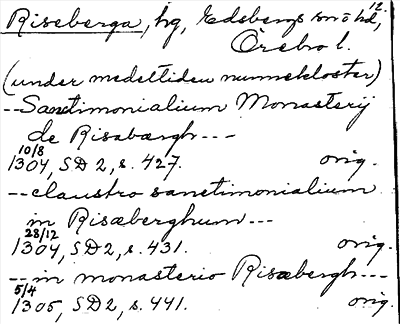 Riseberga, hg, Edsbergs sn o hd, 12.
Örebro l.
(under medeltiden nunnekloster)
-- Sanctimonialium Monasterij
de Risabærgh -- -
10/8
1304, SD 2, s. 427. orig.
-- claustro sanctimonialium
in Risæberghum ---
28/12
1304, SD2, s. 431. orig.
-- in monasterio Risæbergh ---
5/4
1305, SD 2, s. 441. orig.